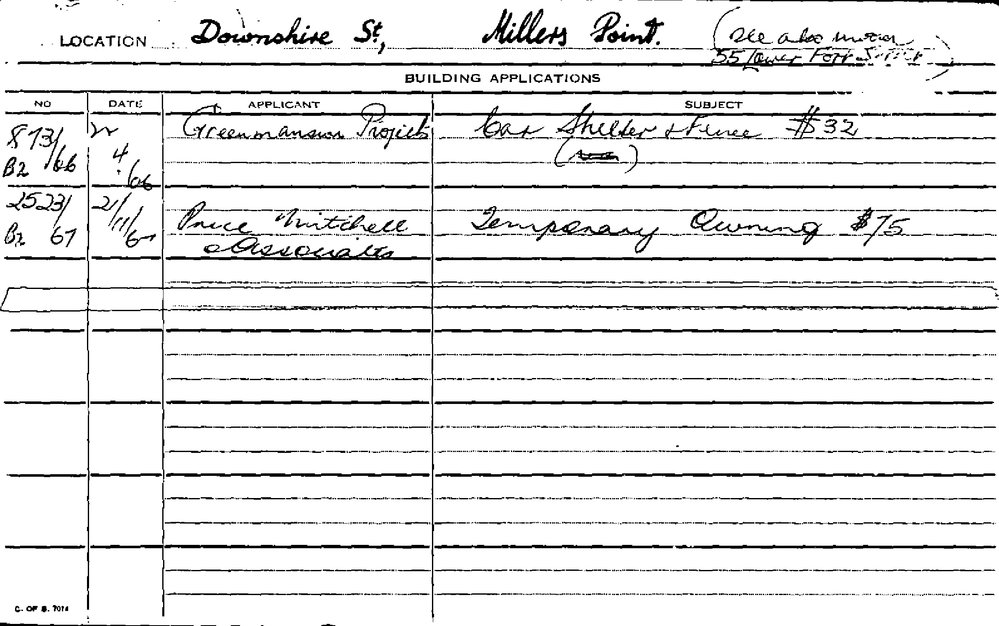 LOCATION Downshire St, Millers Point. (see also under
55 Lower Fort Street)
BUILDING APPLICATIONS
NO DATE APPLICANT SUBJECT
873/ Greenmansion Projects Car Shelter & Fence $32
B2 /66 4
/66
2523/ 21/
B2 67 11/67 Price Mitchell Temporary Awning $75
& Associates
C. OF S. 7014